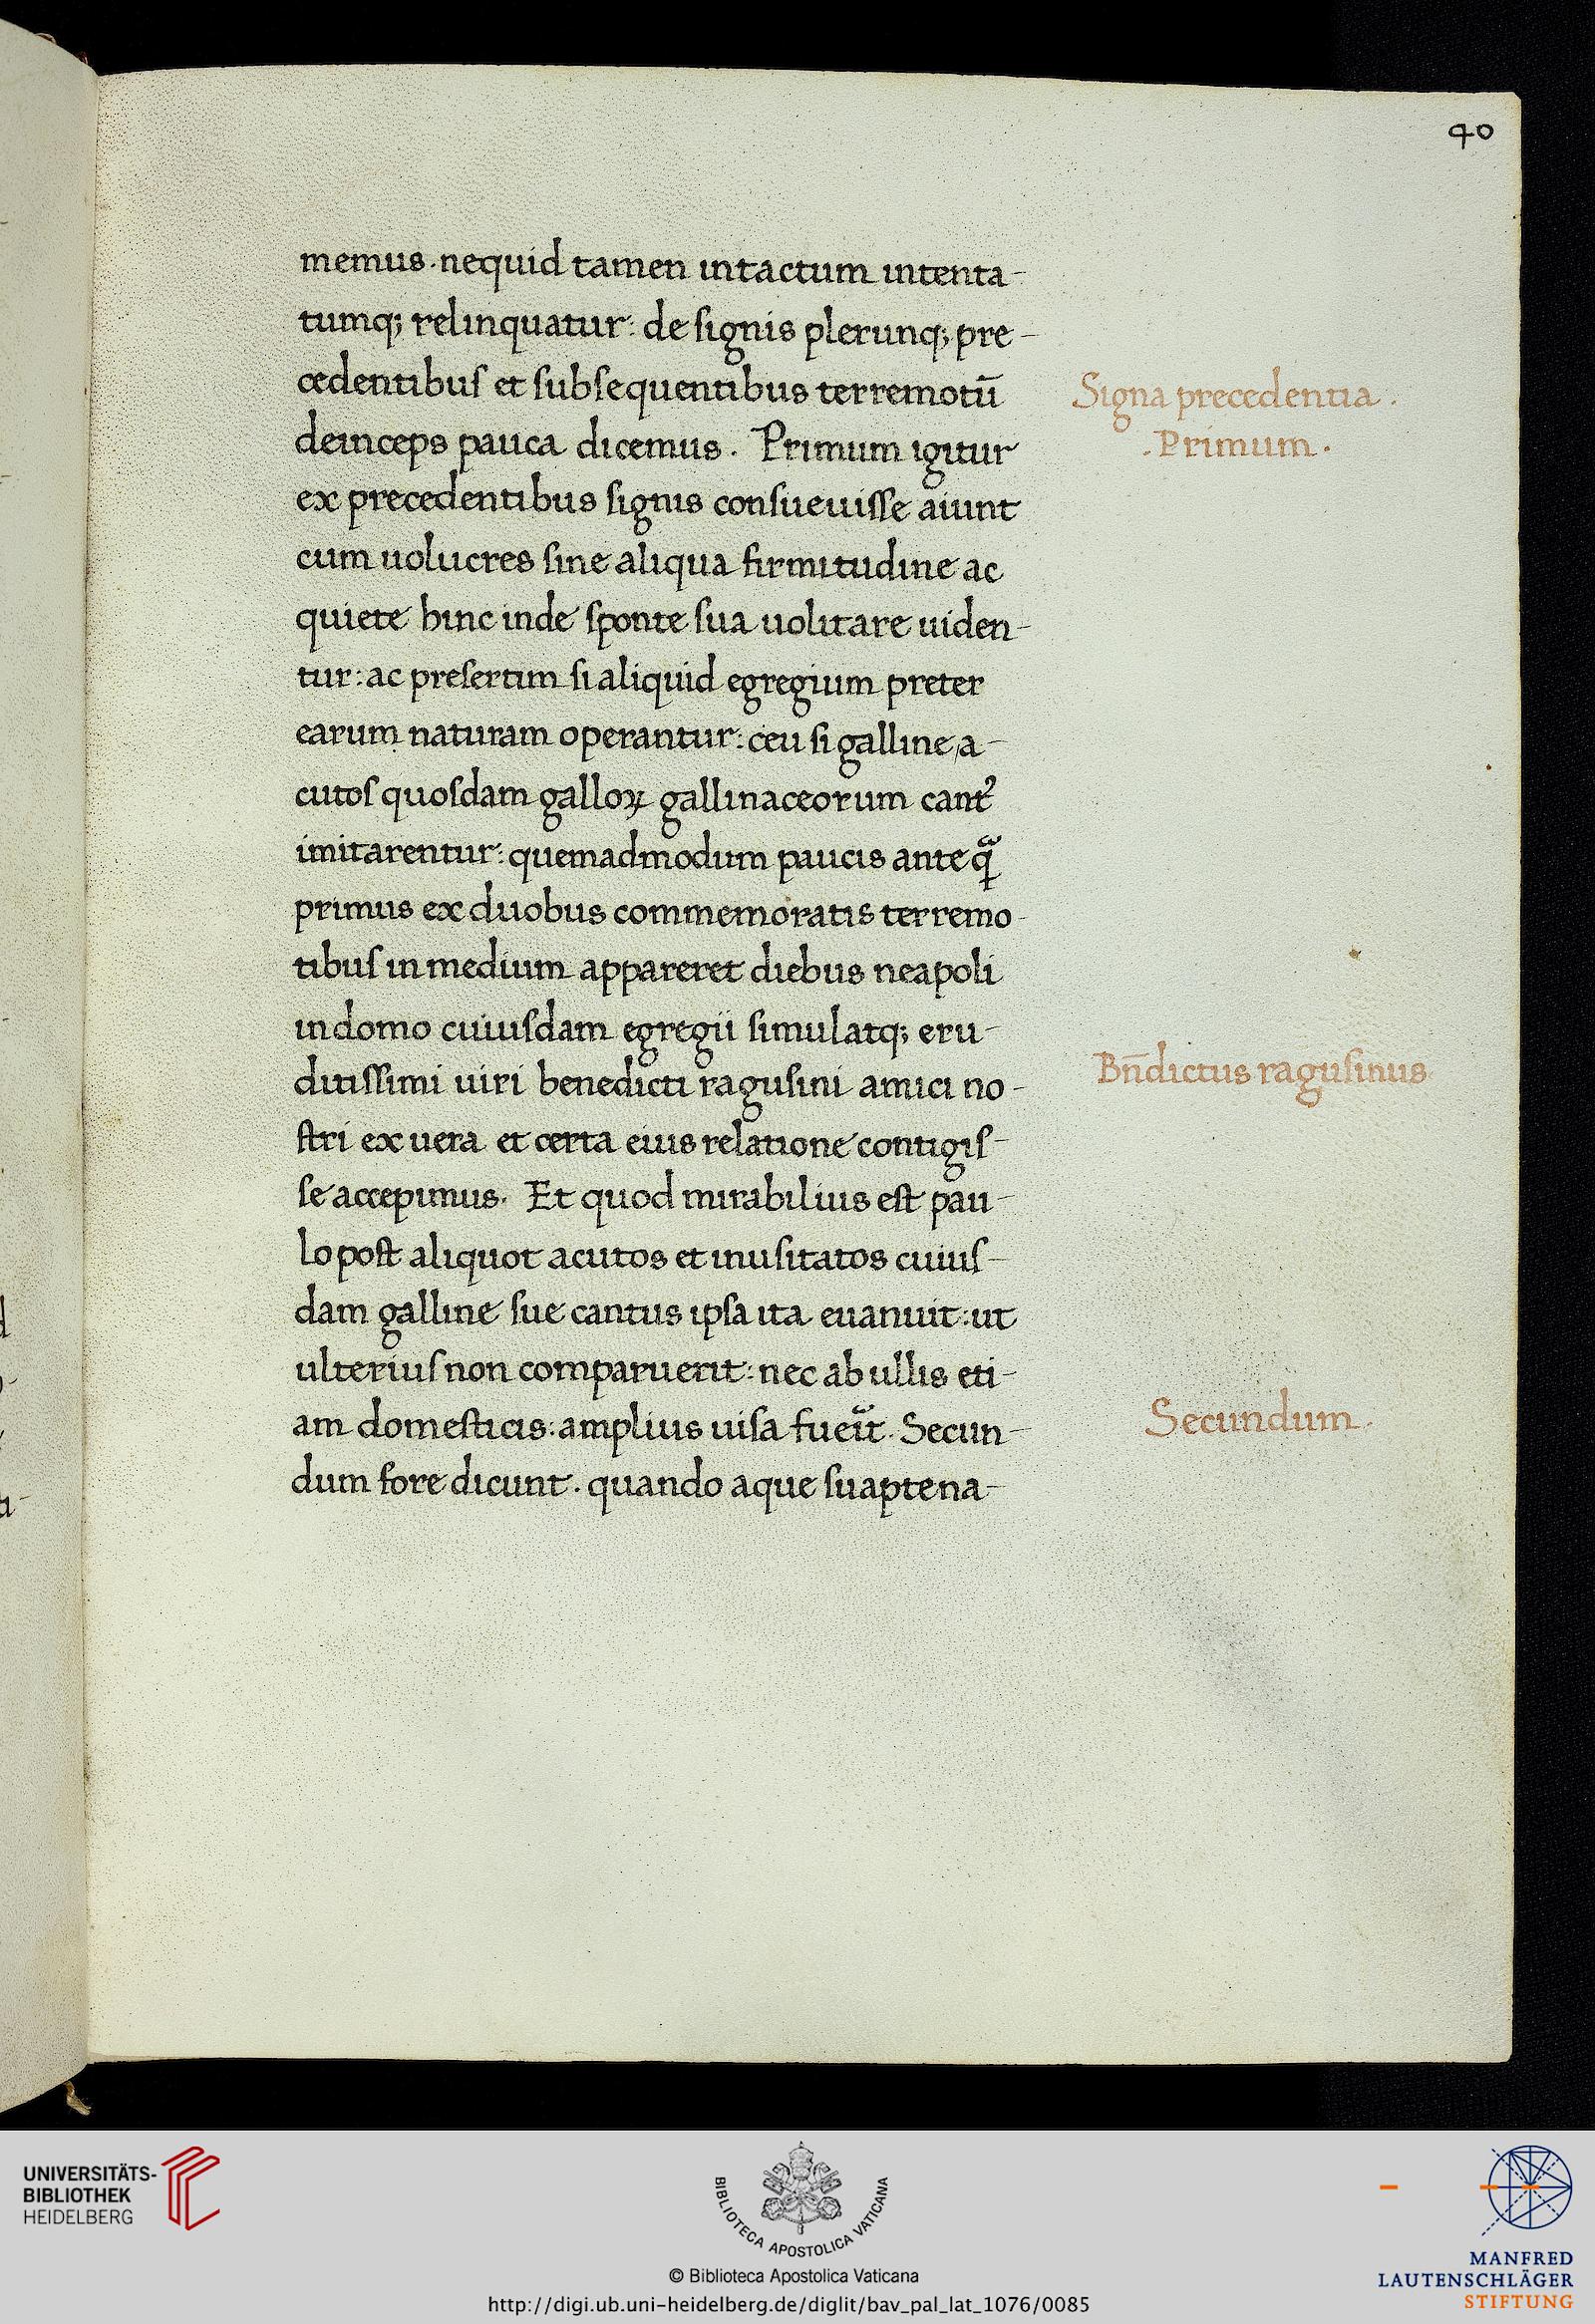 40
memus. nequid tamen intactum intenta-
tumq; relinquatur: de signis plerunq; pre-
cedentibus et subsequentibus terremotū
deinceps pauca dicemus. Primum igitur
ex precedentibus signis consueuisse aiunt
cum uolucres sine aliqua firmitudine ac
quiete hinc inde sponte sua uolitare uiden-
tur: ac presertim si aliquid egregium preter
earum naturam operantur: ceu si galline a-
cutos quosdam galloꝝ gallinaceorum cant᾿
imitarentur: quemadmodum paucis ante qᷓ
primus ex duobus commemoratis terremo-
tibus in medium appareret diebus neapoli
in domo cuiusdam egregii simulatq; eru-
ditissimi uiri benedicti ragusini amici no-
stri ex uera et certa eius relatione contigis-
se accepimus. Et quod mirabilius est pau-
lo post aliquot acutos et inusitatos cuius-
dam galline sue cantus ipsa ita euanuit: ut
ulterius non comparuerit: nec ab ullis eti-
am domesticis: amplius uisa fueᷓit. Secun-
dum fore dicunt. quando aque suapte na-
Signa precedentia.
.Primum.
Bn̄dictus ragusinus.
Secundum.
UNIVERSITÄTS-
BIBLIOTHEK
HEIDELBERG
BIBLIOTECA APOSTOLICA VATICANA
© Biblioteca Apostolica Vaticana
http://digi.ub.uni-heidelberg.de/diglit/bav_pal_lat_1076/0085
MANFRED
LAUTENSCHLÄGER
STIFTUNG